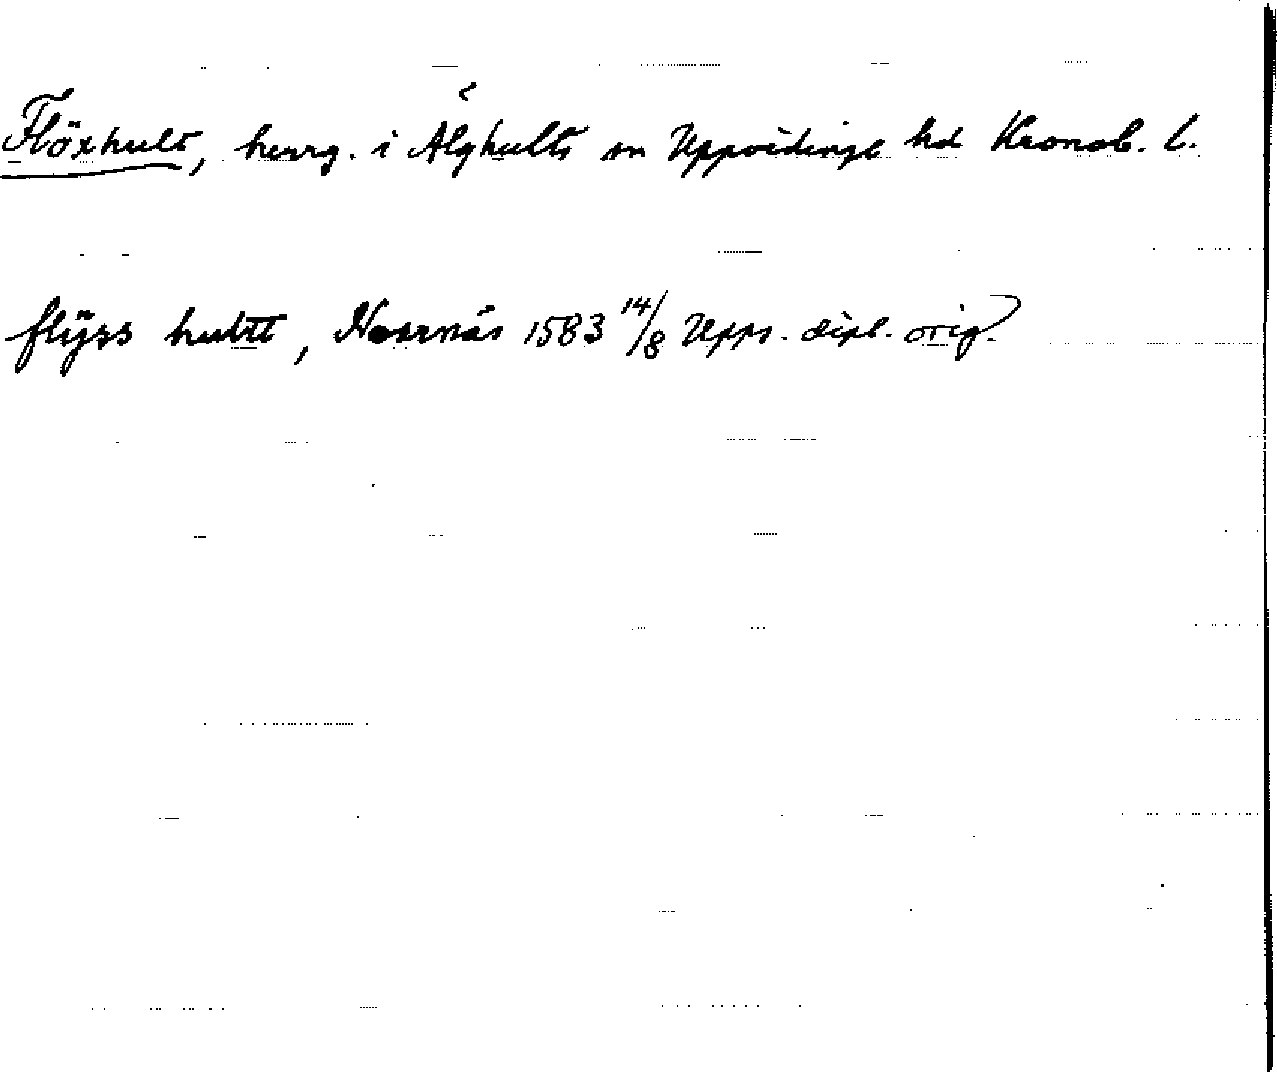 Flöxhult, herrg. i Älghults sn Uppvidinge hd Kronob. l.
flÿss hultt, Norrnäs 1583 14/8 Upps. dipl. orig.